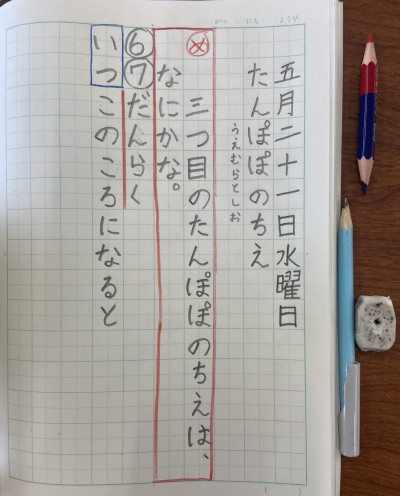 五月二十一日水曜日
たんぽぽのちえ
うえむらとしお
め 三つ目のたんぽぽのちえは、
なにかな。
⑥⑦だんらく
いつ このころになると